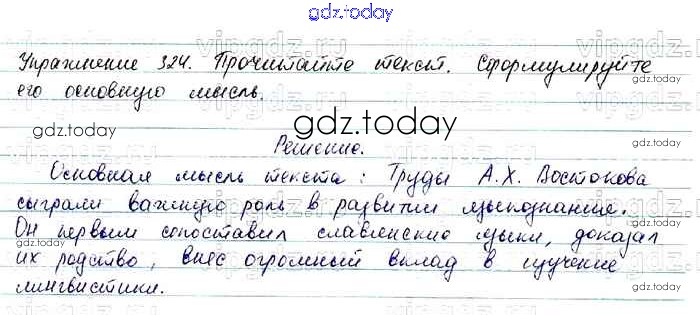 gdz.today
Упражнение 324. Прочитайте текст. Сформулируйте
его основную мысль.
gdz.today gdz.today gdz.today
Решение.
Основная мысль текста: Труды А.Х. Востокова
сыграли важную роль в развитии языкознания.
Он первым сопоставил славянские языки, доказал
их родство, внёс огромный вклад в изучение
лингвистики.
gdz.today